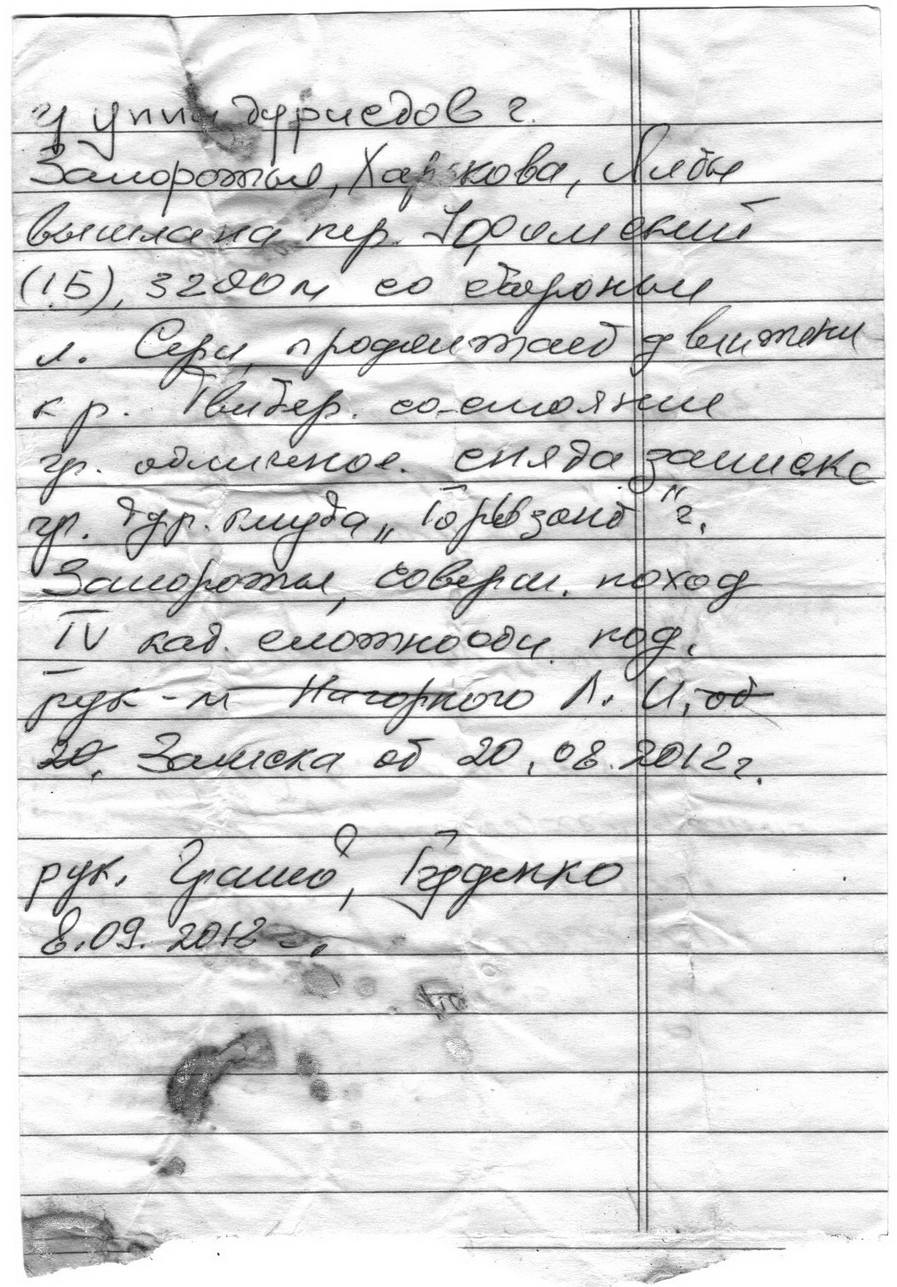 группа туристов г.
Запорожья, Харькова, Ялты
вышла на пер.
(1Б), 3200 м со стороны
л. Сери, продолжает движени
к р. Твибер. состояние
гр. отличное. снята записка
гр. тур. клуба „Горизонт" г.
Запорожья, соверш. поход
IV кат. сложности под.
рук-м Нагорного Л. И, от
20, Записка от 20.08.2012 г.
рук.
8.09.2012 г.